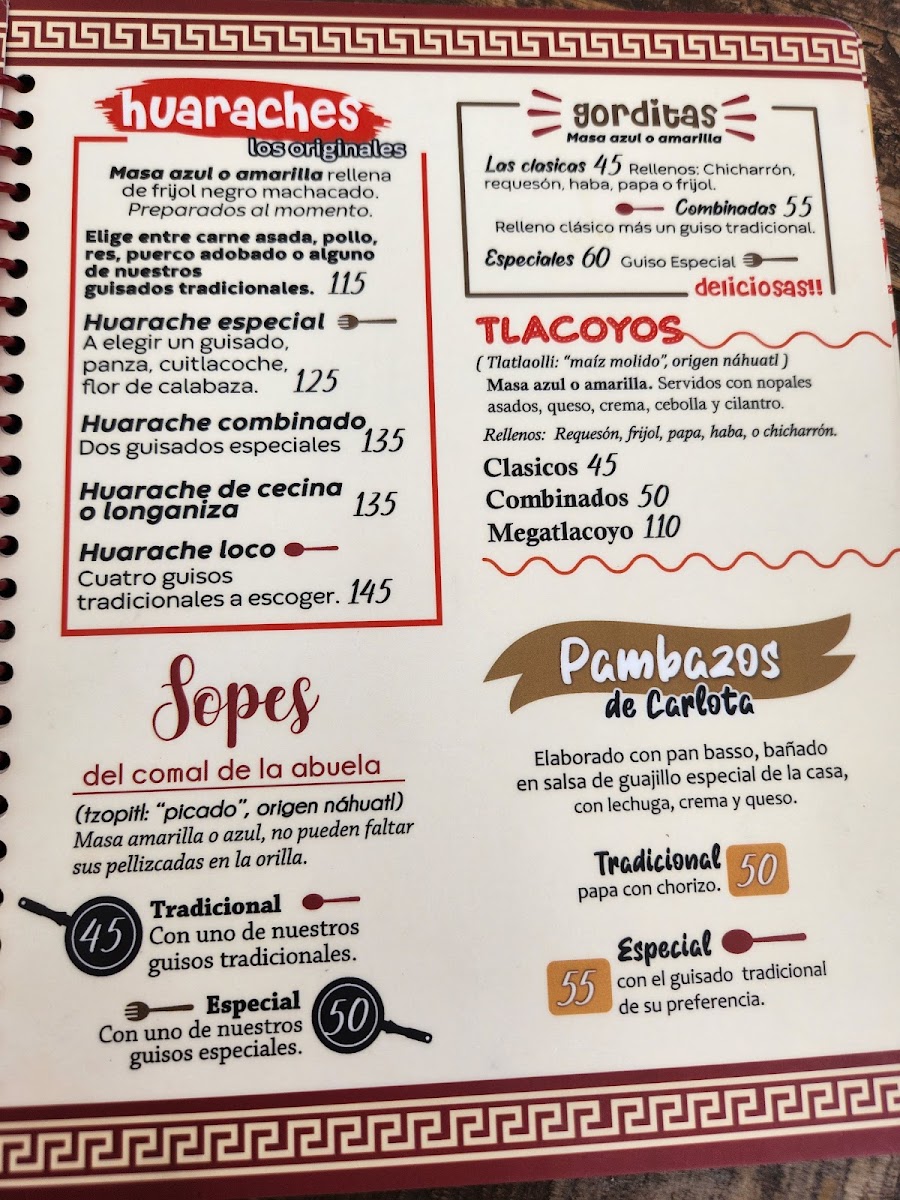 huaraches
los originales
Masa azul o amarilla rellena
de frijol negro machacado.
Preparados al momento.
Elige entre carne asada, pollo,
res, puerco adobado o alguno
de nuestros
guisados tradicionales. 115
Huarache especial
A elegir un guisado,
panza, cuitlacoche,
flor de calabaza. 125
Huarache combinado
Dos guisados especiales 135
Huarache de cecina
o longaniza 135
Huarache loco
Cuatro guisos
tradicionales a escoger. 145
Sopes
del comal de la abuela
(tzopitl: “picado”, origen náhuatl)
Masa amarilla o azul, no pueden faltar
sus pellizcadas en la orilla.
45 Tradicional
Con uno de nuestros
guisos tradicionales.
Especial 50
Con uno de nuestros
guisos especiales.
gorditas
Masa azul o amarilla
Las clasicas 45 Rellenos: Chicharrón,
requesón, haba, papa o frijol.
Combinadas 55
Relleno clásico más un guiso tradicional.
Especiales 60 Guiso Especial
deliciosas!!
TLACOYOS
( Tlatlaolli: “maíz molido”, origen náhuatl )
Masa azul o amarilla. Servidos con nopales
asados, queso, crema, cebolla y cilantro.
Rellenos: Requesón, frijol, papa, haba, o chicharrón.
Clasicos 45
Combinados 50
Megatlacoyo 110
Pambazos
de Carlota
Elaborado con pan basso, bañado
en salsa de guajillo especial de la casa,
con lechuga, crema y queso.
Tradicional 50
papa con chorizo.
Especial
55 con el guisado tradicional
de su preferencia.